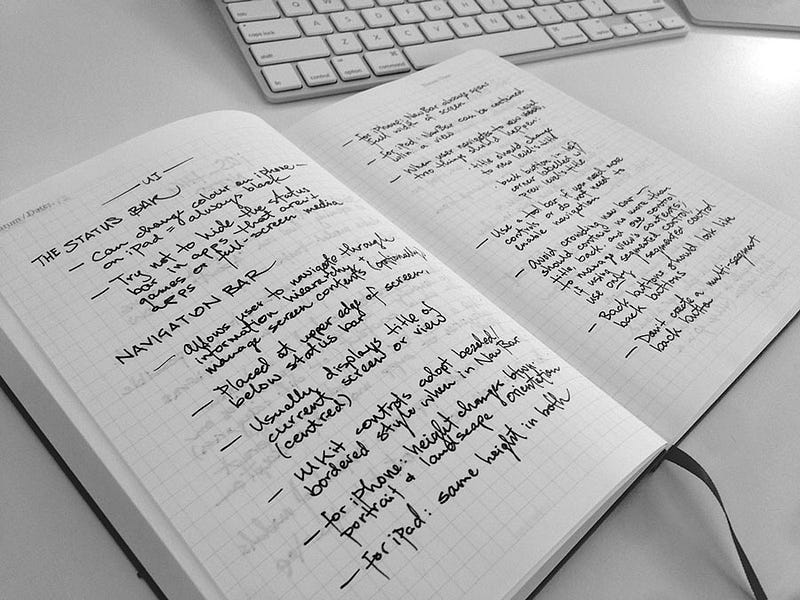 — UI —
THE STATUS BAR
- Can change colour on iphone -
on iPad = always black
- Try not to hide the status
bar in apps that aren't
games or full-screen media
apps
NAVIGATION BAR
- Allows user to navigate through
information hierarchy + (optionally)
manage screen contents
- Placed at upper edge of screen,
below status bar
- Usually displays title of
current screen or view
(centred)
- UIKit controls adopt bezeled/
bordered style when in NavBar
- for iPhone: height changes btwn.
portrait & landscape orientation
- for iPad: same height in both
- for iPhone: NavBar always span
full width of screen
- for iPad: NavBar can be contained
w/in a view
- When user navigates to new level
two things should happen:
title should change
to new level title
back button in left
corner labelled w/
prev. level title
- Use a tool bar if you need more
controls or do not need to
enable navigation
- Avoid crowding nav bar -
should contain no more than
title, back and one control
to manage view's contents.
If using segmented control
use only segmented control
- Back buttons should look like
back buttons
- Don't create a multi-segment
back button
fn
control
option
command
caps lock
Q
W
E
R
T
Y
A
S
D
F
G
H
Z
X
C
V
B
N
command
option